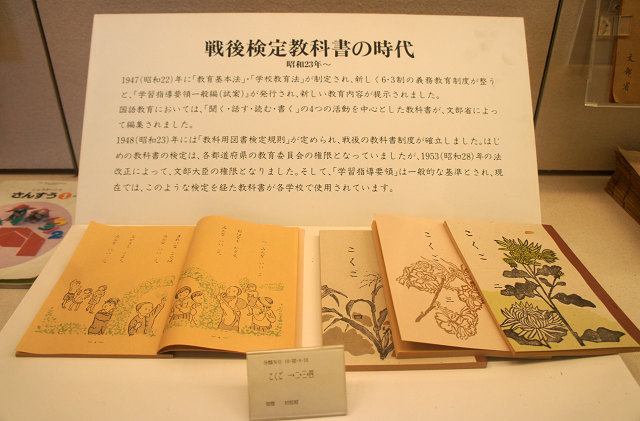 戦後検定教科書の時代
昭和23年〜
1947(昭和22)年に「教育基本法」・「学校教育法」が制定され、新しく6・3制の義務教育制度が整う
と、「学習指導要領一般編(試案)」が発行され、新しい教育内容が提示されました。
国語教育においては、「聞く・話す・読む・書く」の4つの活動を中心とした教科書が、文部省によっ
て編集されました。
1948(昭和23)年には「教科用図書検定規則」が定められ、戦後の教科書制度が確立しました。はじ
めの教科書の検定は、各都道府県の教育委員会の権限となっていましたが、1953(昭和28)年の法
改正によって、文部大臣の権限となりました。そして、「学習指導要領」は一般的な基準とされ、現
在では、このような検定を経た教科書が各学校で使用されています。
文部省
さんすう1
こくご
こくご 二
こくご 三
こくご 一二三巻